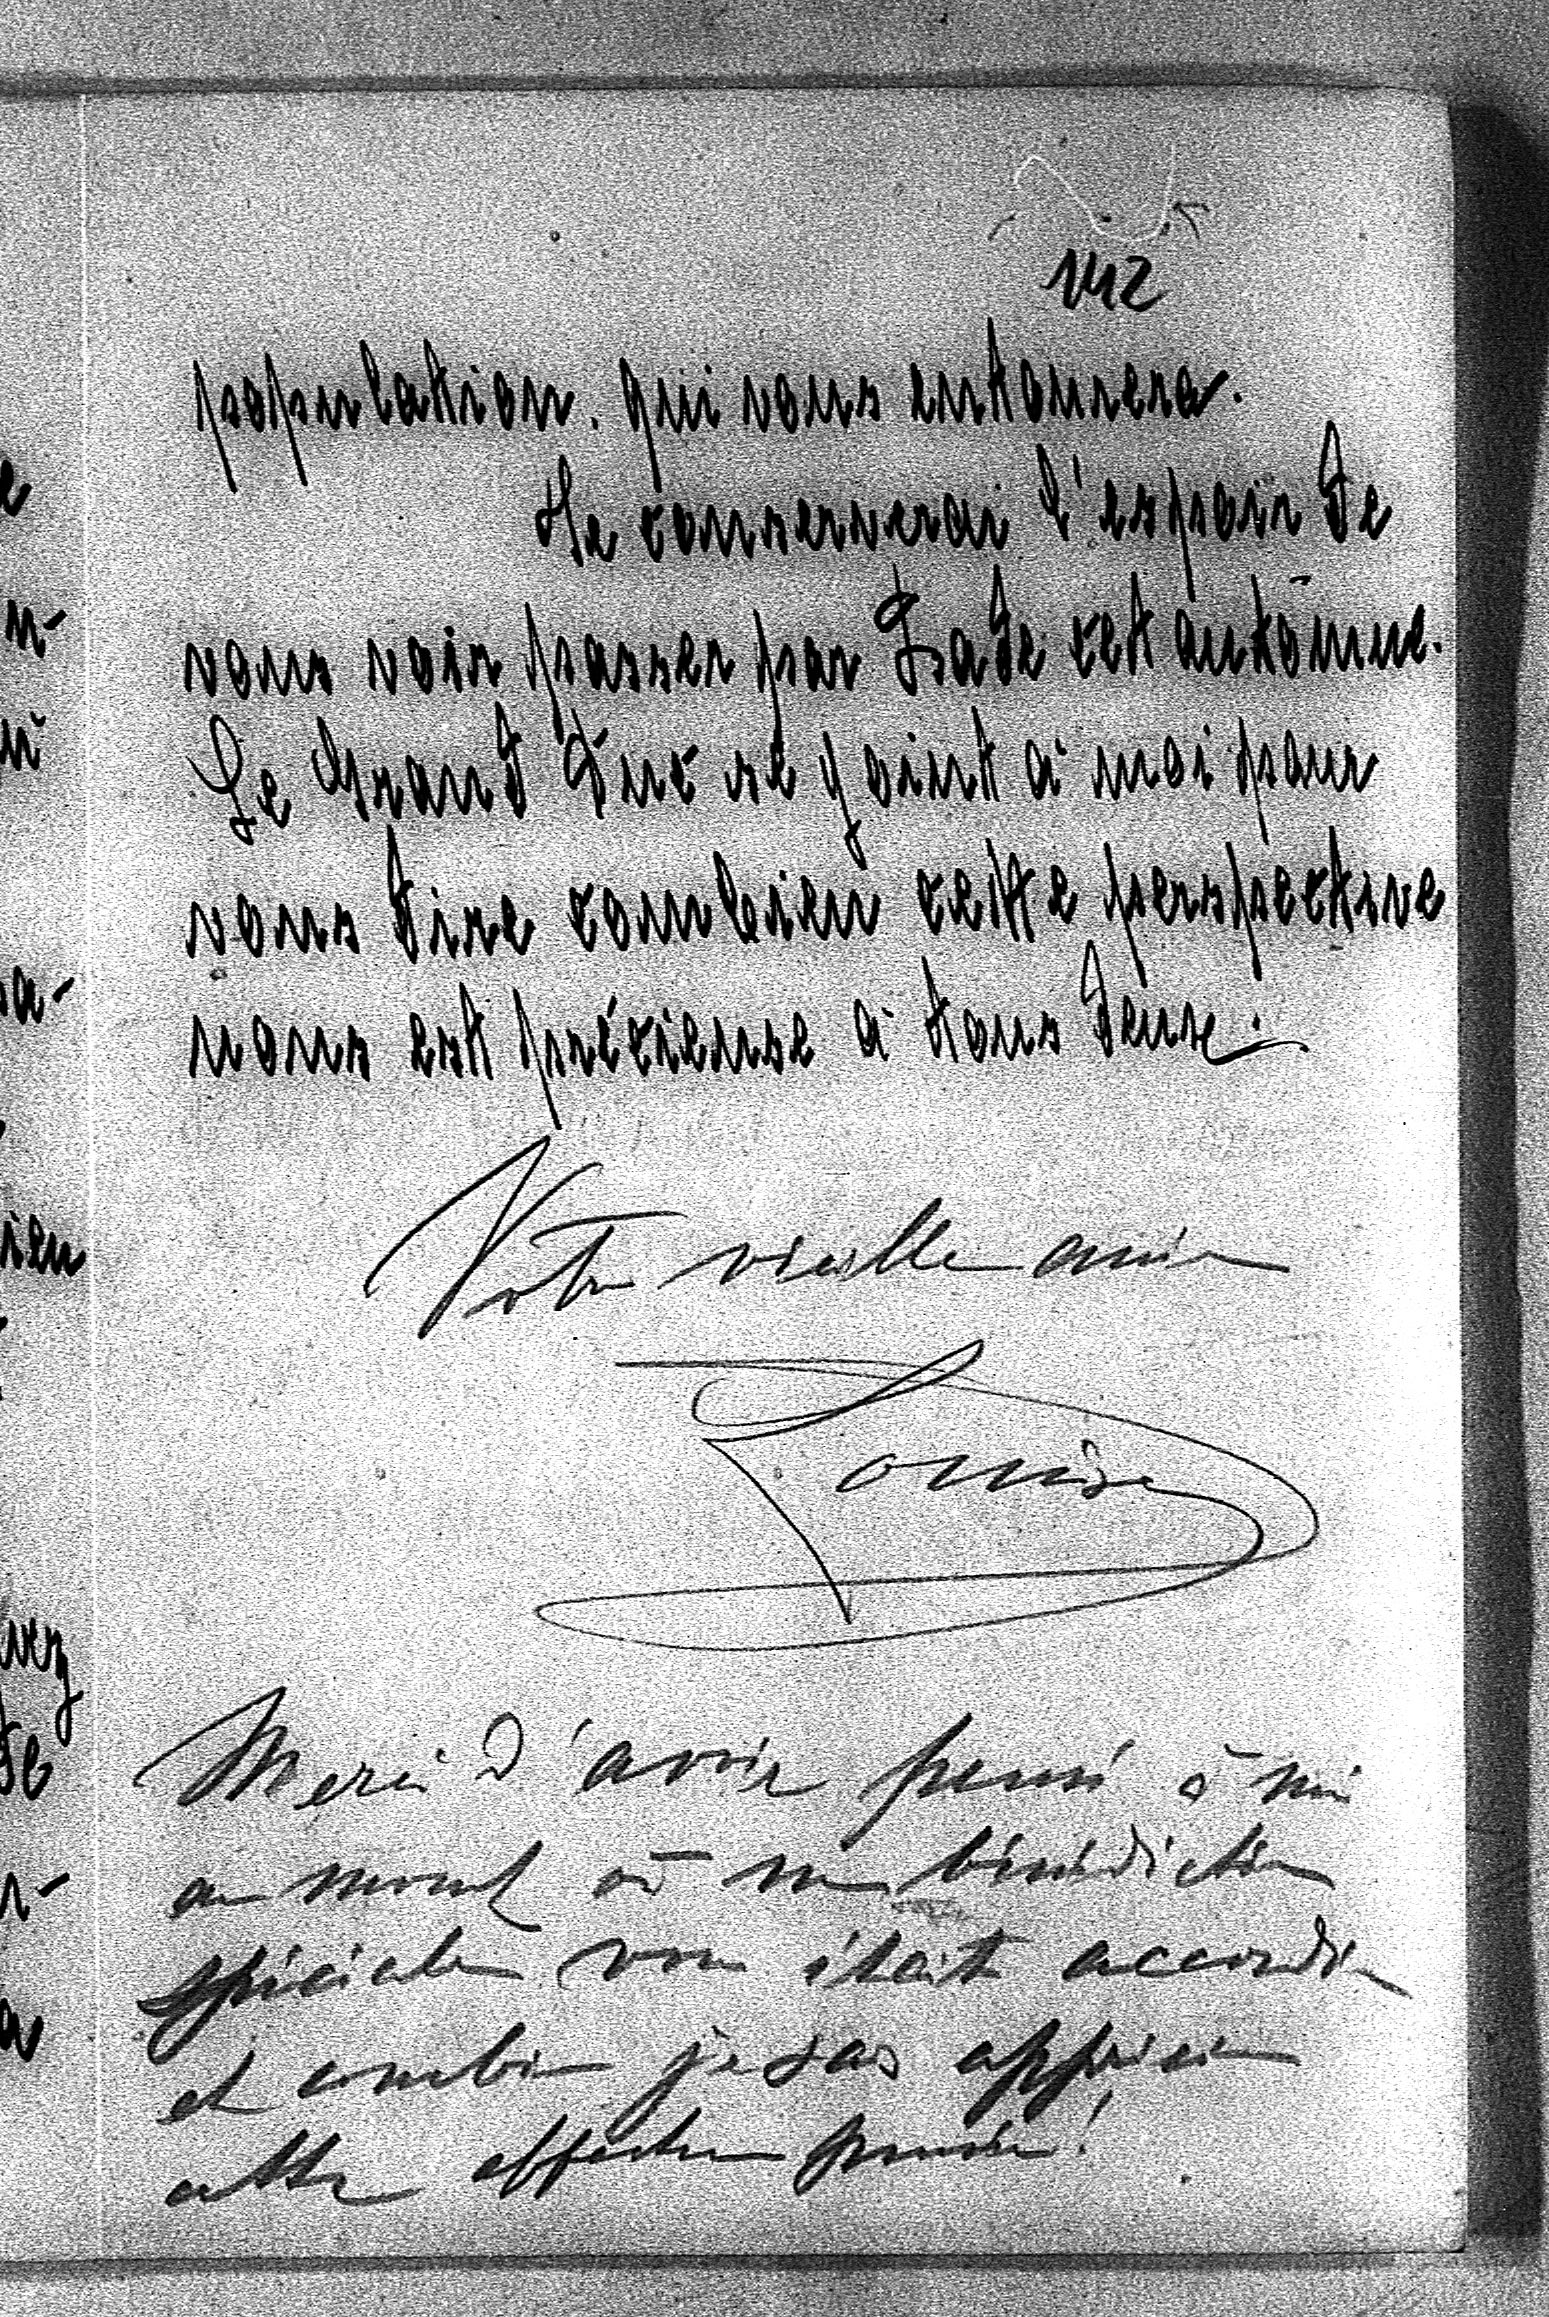 142
population. qui vous entourera.
Je conserverai l'espoir de
vous voir passer par Bade cet automne.
Le Grand Duc se joint à moi pour
vous dire combien cette perspective
nous est précieuse à tous deux.
Votre vieille amie
Louise
Merci d'avoir pensé à moi
au moment où une bénédiction
spéciale vous était accordée
et combien je sais apprécier
cette affectueuse pensée!